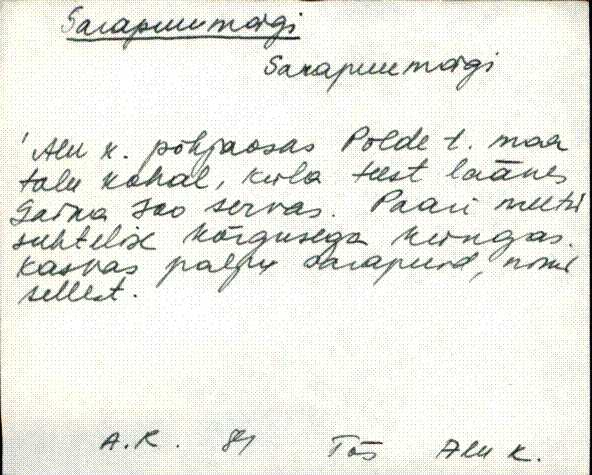 Sarapuumägi
Sarapuumägi
Alu k. põhjaosas Põlde t. maa
talu kohal, küla teest läänes
jao servas. Paari meetri
suhtelise kõrgusega küngas.
Kasvas palju sarapuid, nimi
sellest.
A.K. 81 Tõs Alu k.